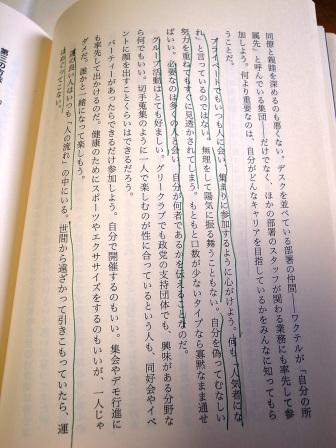 同僚と親睦を深めるのも悪くない。デスクを並べている部署の仲間――ワクテルが「自分の所
属先」と呼んでいる集団――だけでなく、ほかの部署のスタッフが関わる業務にも率先して参
加しよう。何より重要なのは、自分がどんなキャリアを目指しているかをみんなに知ってもら
うことだ。
プライベートでもいつも人に会い、集まりに参加するように心がけよう。何も「人気者にな
れ」と言っているのではない。無理をして陽気に振る舞うこともない。自分を偽ってむなしい
努力を重ねてもすぐに見透かされてしまう。もともと口数が少ないタイプなら寡黙なまま通せ
ばいい。必要なのは多くの人と会い、自分が何者であるかを伝えることなのだ。
グループ活動はとても好ましい。グリークラブでも政党の支持団体でも、興味がある分野な
ら何でもいい。切手蒐集のように一人で楽しむのが性に合っているという人も、同好会やイベ
ントに顔を出すことくらいはできるだろう。
パーティーがあったらできるだけ参加しよう。自分で開催するのもいい。集会やデモ行進に
も率先して出かけるのだ。健康のためにスポーツやエクササイズをするのもいいが、一人じゃ
ダメだ。誰かと一緒になって楽しもう。
運の良い人はいつも「人の流れ」の中にいる。世間から遠ざかって引きこもっていたら、運
はめぐってこない。